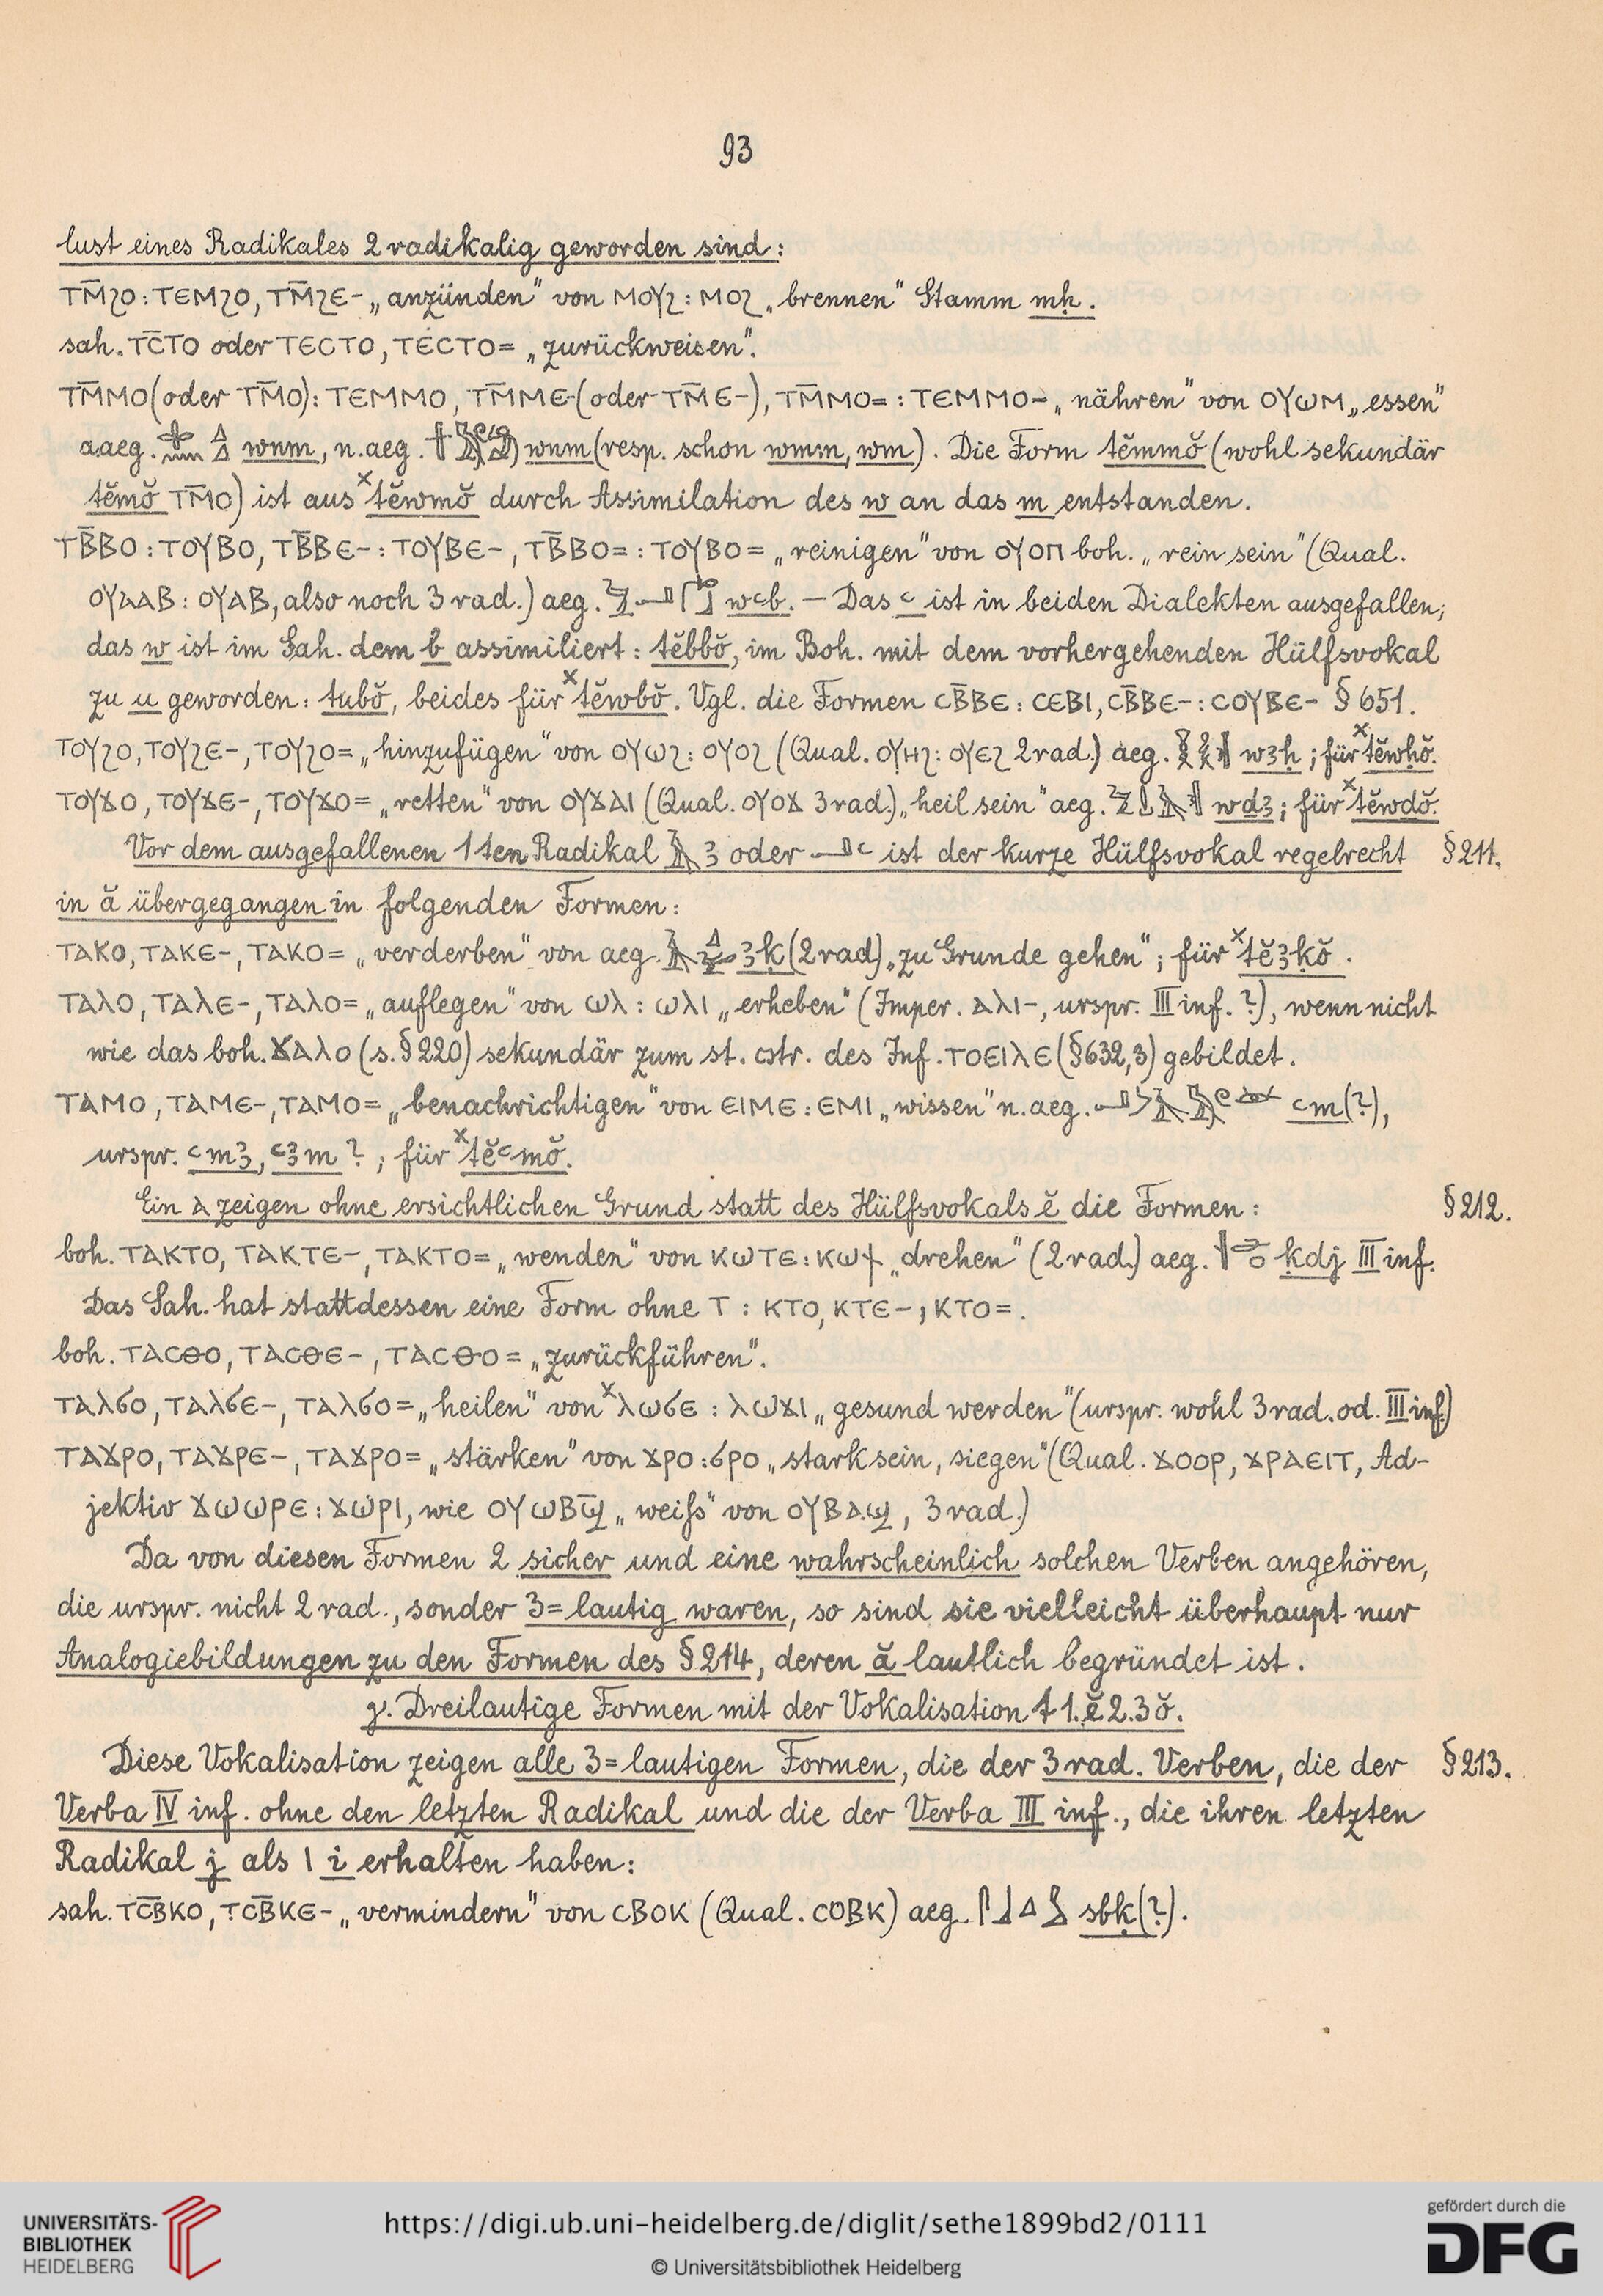 93
lust eines Radikales 2 radikalig geworden sind:
ⲧⲙ̄ϩⲟ : ⲧⲉⲙϩⲟ, ⲧⲙ̄ϩⲉ- „anzünden" von ⲙⲟⲩϩ : ⲙⲟϩ „brennen" Stamm mḥ.
sah. ⲧⲥ̄ⲧⲟ oder ⲧⲉⲥⲧⲟ, ⲧⲉⲥⲧⲟ= „zurückweisen".
ⲧⲙ̄ⲙⲟ (oder ⲧⲙ̄ⲟ) : ⲧⲉⲙⲙⲟ, ⲧⲙ̄ⲙⲉ- (oder ⲧⲙ̄ⲉ-), ⲧⲙ̄ⲙⲟ= : ⲧⲉⲙⲙⲟ- „nähren" von ⲟⲩⲱⲙ „essen"
a.aeg. wnm, n.aeg. wnm (resp. schon wmm, wm). Die Form tĕmmŏ (wohl sekundär
tĕmŏ ⲧⲙ̄ⲟ) ist aus ˣtĕwmŏ durch Assimilation des w an das m entstanden.
ⲧⲃ̄ⲃⲟ : ⲧⲟⲩⲃⲟ, ⲧⲃ̄ⲃⲉ- : ⲧⲟⲩⲃⲉ-, ⲧⲃ̄ⲃⲟ= : ⲧⲟⲩⲃⲟ= „reinigen" von ⲟⲩⲟⲡ boh. „rein sein" (Qual.
ⲟⲩⲁⲁⲃ : ⲟⲩⲁⲃ, also noch 3 rad.) aeg. wꜥb. — Das ꜥ ist in beiden Dialekten ausgefallen;
das w ist im Sah. dem b assimiliert : tĕbbŏ, im Boh. mit dem vorhergehenden Hülfsvokal
zu u geworden : tubŏ, beides für ˣtĕwbŏ. Vgl. die Formen ⲥⲃ̄ⲃⲉ : ⲥⲉⲃⲓ, ⲥⲃ̄ⲃⲉ- : ⲥⲟⲩⲃⲉ- § 651.
ⲧⲟⲩϩⲟ, ⲧⲟⲩϩⲉ-, ⲧⲟⲩϩⲟ= „hinzufügen" von ⲟⲩⲱϩ : ⲟⲩⲟϩ (Qual. ⲟⲩⲏϩ : ⲟⲩⲉϩ 2 rad.) aeg. wꜣḥ ; für ˣtĕwḥŏ.
ⲧⲟⲩϫⲟ, ⲧⲟⲩϫⲉ-, ⲧⲟⲩϫⲟ= „retten" von ⲟⲩϫⲁⲓ (Qual. ⲟⲩⲟϫ 3 rad.) „heil sein" aeg. wdꜣ ; für ˣtĕwdŏ.
Vor dem ausgefallenen 1ten Radikal 𓄿 ꜣ oder 𓂝 ꜥ ist der kurze Hülfsvokal regelrecht § 211.
in ă übergegangen in folgenden Formen:
ⲧⲁⲕⲟ, ⲧⲁⲕⲉ-, ⲧⲁⲕⲟ= „verderben" von aeg. ꜣḳ (2 rad.) „zu Grunde gehen" ; für ˣtĕꜣḳŏ.
ⲧⲁⲗⲟ, ⲧⲁⲗⲉ-, ⲧⲁⲗⲟ= „auflegen" von ⲱⲗ : ⲱⲗⲓ „erheben" (Imper. ⲁⲗⲓ-, urspr. III inf. ?), wenn nicht
wie das boh. ϫⲁⲗⲟ (s. § 220) sekundär zum st. cstr. des Inf. ⲧⲟⲉⲓⲗⲉ (§ 632,3) gebildet.
ⲧⲁⲙⲟ, ⲧⲁⲙⲉ-, ⲧⲁⲙⲟ= „benachrichtigen" von ⲉⲓⲙⲉ : ⲉⲙⲓ „wissen" n.aeg. ꜥm (?),
urspr. ꜥmꜣ, ꜥꜣm ? ; für ˣtĕꜥmŏ.
Ein ⲁ zeigen ohne ersichtlichen Grund statt des Hülfsvokals ĕ die Formen : § 212.
boh. ⲧⲁⲕⲧⲟ, ⲧⲁⲕⲧⲉ-, ⲧⲁⲕⲧⲟ= „wenden" von ⲕⲱⲧⲉ : ⲕⲱϯ „drehen" (2 rad.) aeg. ḳdj III inf.
Das Sah. hat stattdessen eine Form ohne ⲧ : ⲕⲧⲟ, ⲕⲧⲉ-, ⲕⲧⲟ=.
boh. ⲧⲁⲥⲑⲟ, ⲧⲁⲥⲑⲉ-, ⲧⲁⲥⲑⲟ= „zurückführen".
ⲧⲁⲗϭⲟ, ⲧⲁⲗϭⲉ-, ⲧⲁⲗϭⲟ= „heilen" von ˣⲗⲱϭⲉ : ⲗⲱϫⲓ „gesund werden" (urspr. wohl 3 rad. od. III inf.)
ⲧⲁϫⲣⲟ, ⲧⲁϫⲣⲉ-, ⲧⲁϫⲣⲟ= „stärken" von ϫⲣⲟ : ϭⲣⲟ „stark sein, siegen" (Qual. ϫⲟⲟⲣ, ϫⲣⲁⲉⲓⲧ, Ad-
jektiv ϫⲱⲱⲣⲉ : ϫⲱⲣⲓ, wie ⲟⲩⲱⲃϣ̄ „weiß" von ⲟⲩⲃⲁϣ, 3 rad.)
Da von diesen Formen 2 sicher und eine wahrscheinlich solchen Verben angehören,
die urspr. nicht 2 rad., sonder 3=lautig waren, so sind sie vielleicht überhaupt nur
Analogiebildungen zu den Formen des § 214, deren ă lautlich begründet ist.
γ. Dreilautige Formen mit der Vokalisation t 1.ĕ 2.3 ŏ.
Diese Vokalisation zeigen alle 3=lautigen Formen, die der 3 rad. Verben, die der § 213.
Verba IV inf. ohne den letzten Radikal und die der Verba III inf., die ihren letzten
Radikal j als ⲓ i erhalten haben:
sah. ⲧⲥ̄ⲃ̄ⲕⲟ, ⲧⲥ̄ⲃ̄ⲕⲉ- „vermindern" von ⲥⲃⲟⲕ (Qual. ⲥⲟⲃⲕ) aeg. sbḳ (?).
UNIVERSITÄTS-
BIBLIOTHEK
HEIDELBERG
https://digi.ub.uni-heidelberg.de/diglit/sethe1899bd2/0111
© Universitätsbibliothek Heidelberg
gefördert durch die
DFG